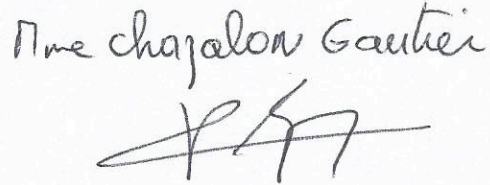 Mme Chazalon Gautier